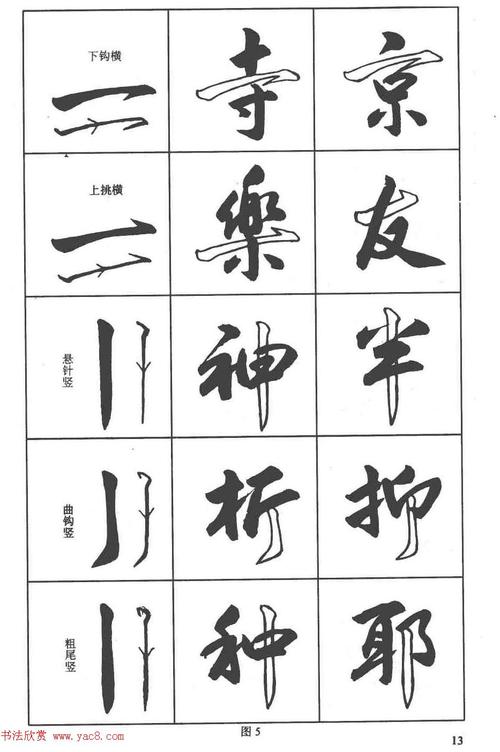 下钩横 寺 京
上挑横 樂 友
悬针竖 神 半
曲钩竖 析 抑
粗尾竖 种 耶
图5
13
书法欣赏 www.yac8.com